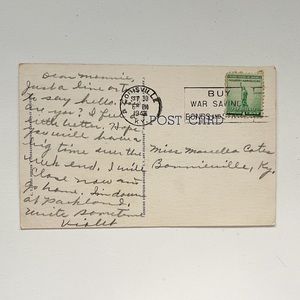 Dear Mennie,
Just a line or 2
to say hello.
are you? I feel
little better. Hope
you will have a
big time over the
week end. I will
close now and
go home. Im down
at Parkland.
write sometime
Violet
LOUISVILLE
SEP 30
6 PM
1942
KY.
BUY
WAR SAVINGS
BONDS AND STAMPS
POST CARD
Miss Marcella Cates
Bonnieville, Ky.